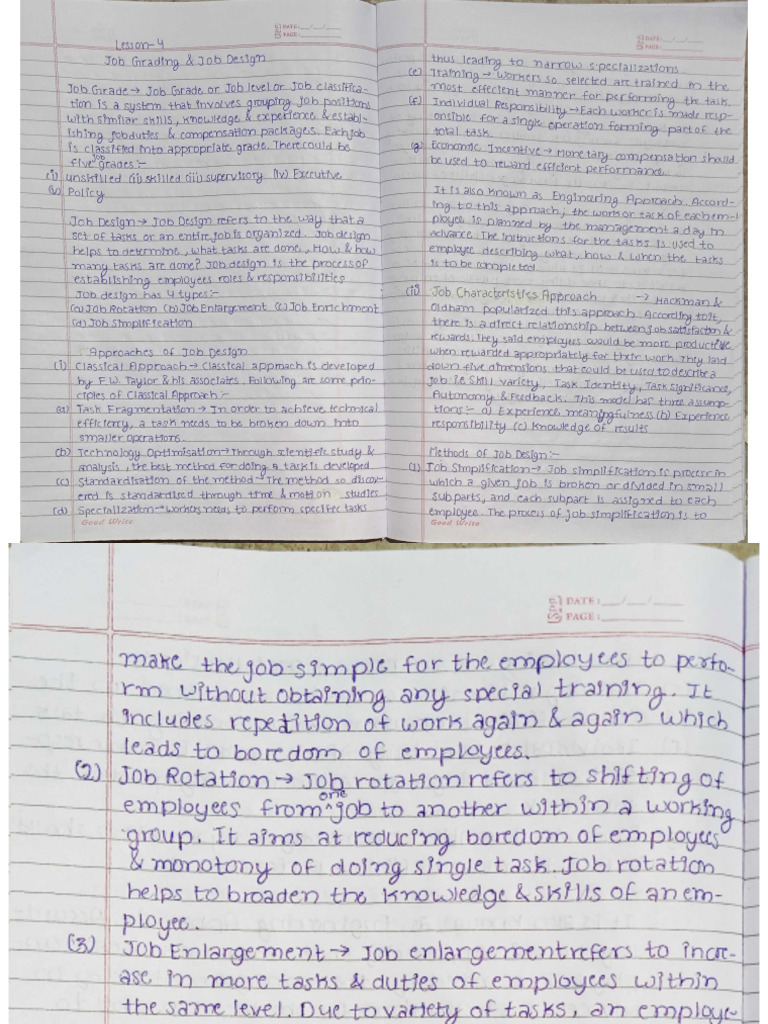 DATE: __/__/__
PAGE: ______
Lesson-4
Job Grading & Job Design
Job Grade → Job Grade or Job level or Job classifica-
tion is a system that involves grouping job positions
with similar skills, knowledge & experience & establ-
ishing jobduties & compensation packages. Each job
is classified into appropriate grade. There could be
five job grades:-
(i) unskilled (ii) skilled (iii) supervisory (iv) Executive
(v) Policy
Job Design → Job Design refers to the way that a
set of tasks or an entire job is organized. Job design
helps to determine, what tasks are done, How & how
many tasks are done? Job design is the process of
establishing employees roles & responsibilities
Job design has 4 types:-
(a) Job Rotation (b) Job Enlargement (c) Job Enrichment
(d) Job Simplification
Approaches of Job Design
(i) Classical Approach → Classical approach is developed
by F.W. Taylor & his associates. Following are some prin-
ciples of Classical Approach:-
(a) Task Fragmentation → In order to achieve technical
efficiency, a task needs to be broken down into
smaller operations.
(b) Technology Optimisation → Through scientific study &
analysis, the best method for doing a task is developed
(c) Standardisation of the method → The method so discov-
ered is standardised through time & motion studies
(d) Specialization → workers needs to perform specific tasks
Good Write
DATE: __/__/__
PAGE: ______
thus leading to narrow specializations
(e) Training → Workers so selected are trained in the
most effecient manner for performing the task.
(f) Individual Responsibility → Each worker is made resp-
onsible for a single operation forming part of the
total task.
(g) Economic Incentive → Monetary compensation should
be used to reward efficient performance.
It is also known as Engineering Approach. Accord-
ing to this approach, the work or task of each em-
ployee is planned by the management a day in
advance. The instructions for the tasks is used to
employee describing what, how & when the tasks
is to be completed.
(ii) Job Characteristics Approach → Hackman &
Oldham popularized this approach. According to it,
there is a direct relationship between job satisfaction &
rewards. They said employees would be more productive
when rewarded appropriately for their work. They laid
down five dimensions that could be used to describe a
job i.e Skill variety, Task Identity, Task Significance,
Autonomy & Fudback. This model has three assump-
tions:- a) Experience meaningfulness (b) Experience
responsibility (c) Knowledge of results
Methods of Job Design:-
(1) Job Simplification → Job simplification is process in
which a given job is broken or divided in small
sub parts, and each subpart is assigned to each
employee. The process of job simplification is to
Good Write
DATE: __/__/__
PAGE: ______
make the job simple for the employees to perfo-
rm without obtaining any special training. It
includes repetition of work again & again which
leads to boredom of employees.
(2) Job Rotation → Job rotation refers to shifting of
employees from one job to another within a working
group. It aims at reducing boredom of employees
& monotony of doing single task. Job rotation
helps to broaden the knowledge & skills of an em-
ployee.
(3) Job Enlargement → Job enlargement refers to incre-
ase in more tasks & duties of employees within
the same level. Due to variety of tasks, an employe-